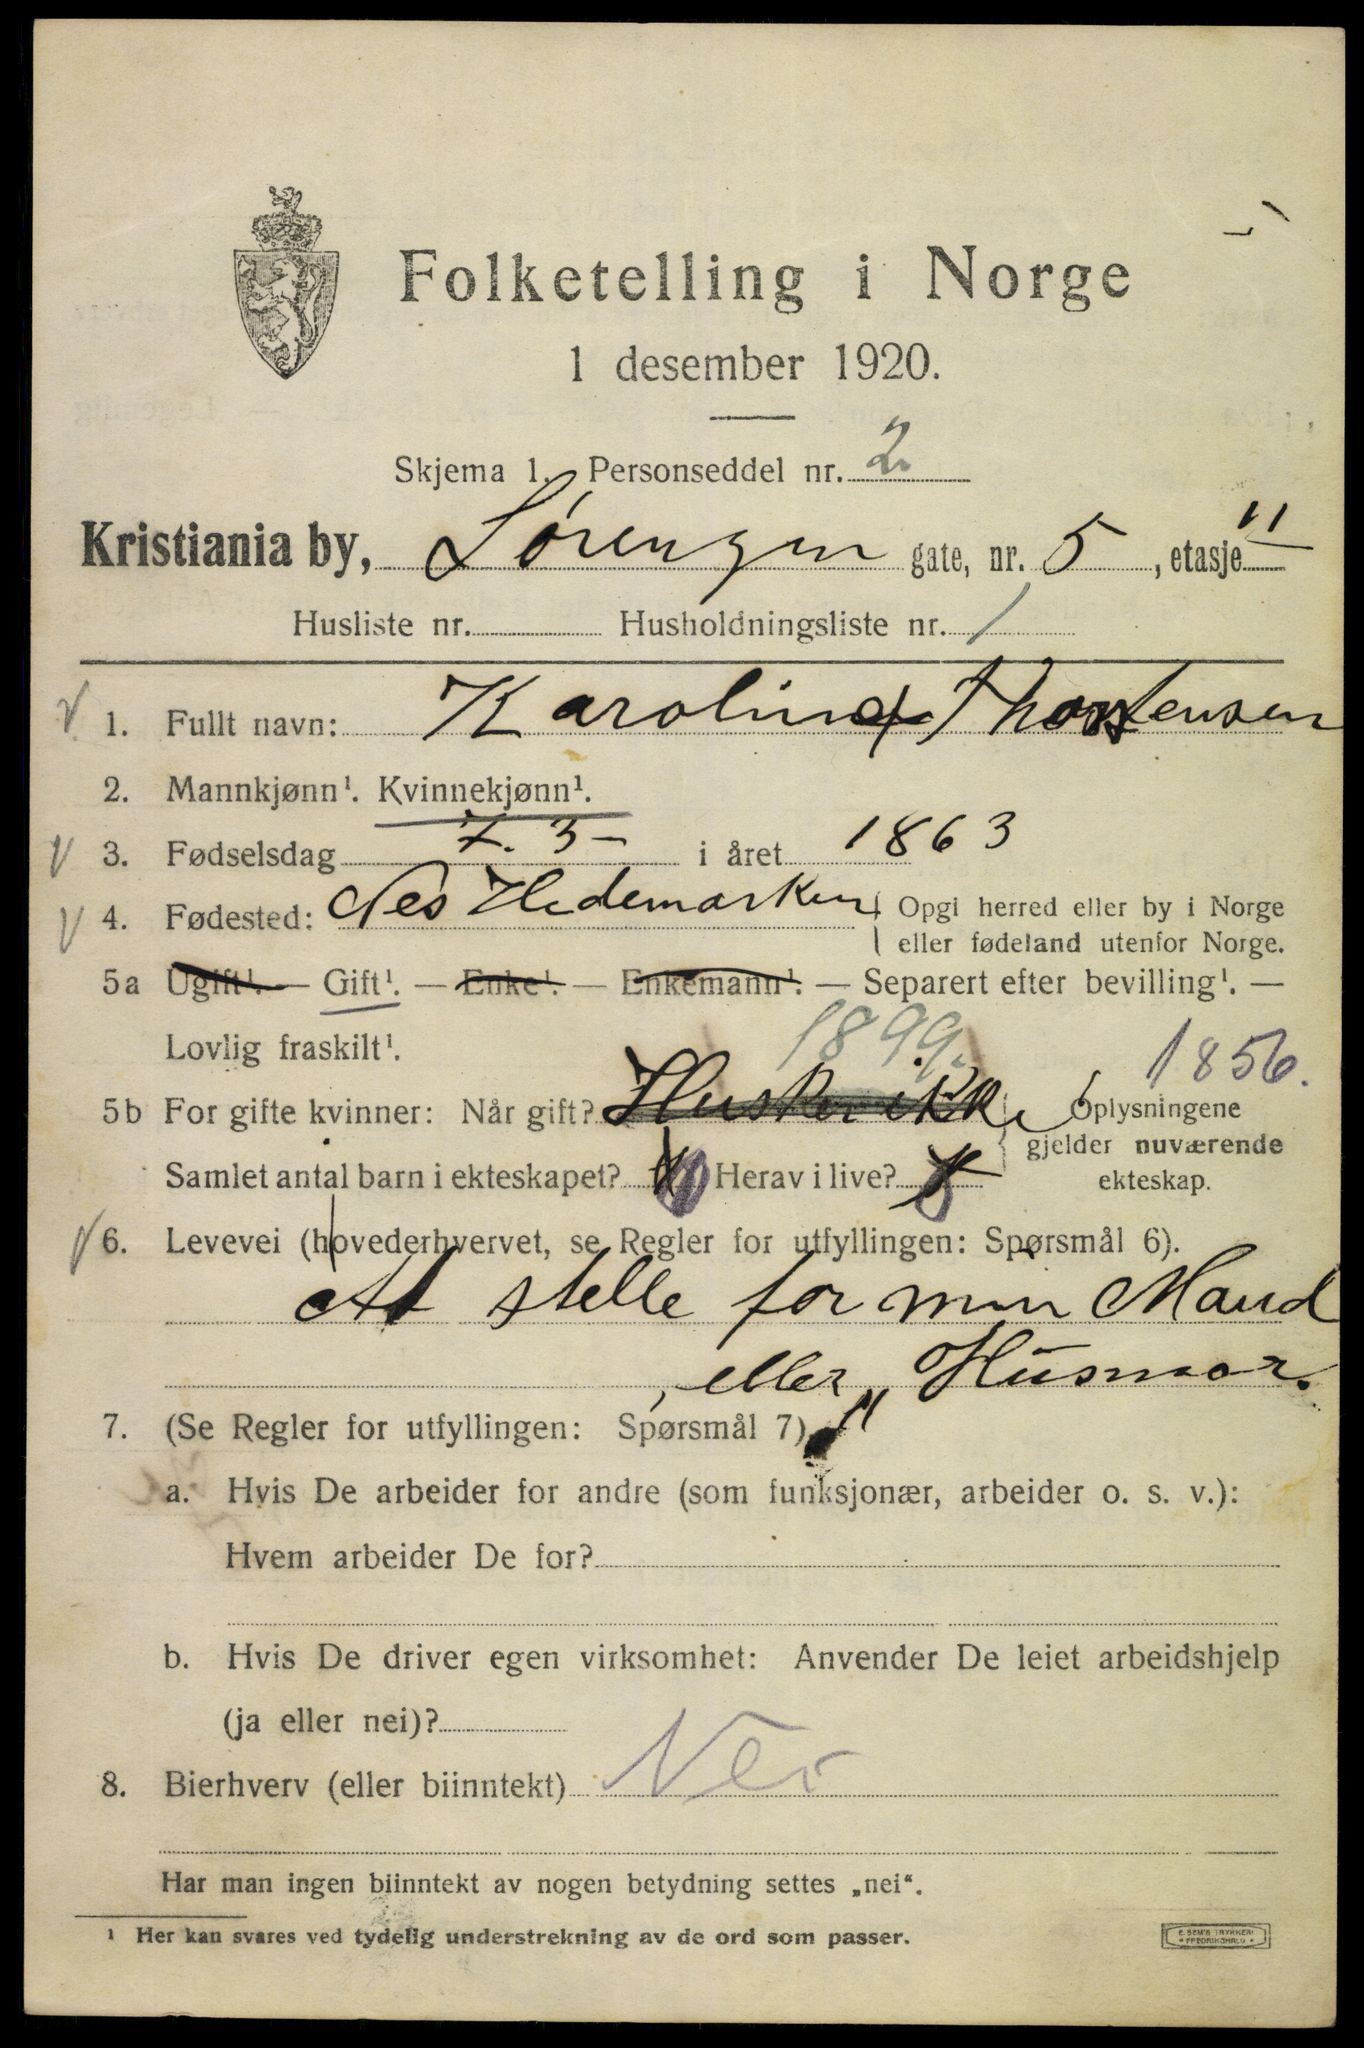 Folketelling i Norge
1 desember 1920.
Skjema 1. Personseddel nr. 2
Kristiania by, Sørengen gate, nr. 5, etasje 11
Husliste nr. Husholdningsliste nr. 1
1. Fullt navn: Karoline Thorstensen
2. Mannkjønn¹. Kvinnekjønn¹.
3. Fødselsdag 7. 3 - i året 1863
4. Fødested: Nes Hedemarken { Opgi herred eller by i Norge
eller fødeland utenfor Norge.
5a Ugift¹. — Gift¹. — Enke¹. — Enkemann¹. — Separert efter bevilling¹. —
Lovlig fraskilt¹. 1899. 1856.
5b For gifte kvinner: Når gift? Husker ikke { Oplysningene
gjelder nuværende
Samlet antal barn i ekteskapet? Herav i live? ekteskap.
6. Levevei (hovederhvervet, se Regler for utfyllingen: Spørsmål 6).
At stelle for min Mand
, eller „Husmor.
7. (Se Regler for utfyllingen: Spørsmål 7)
a. Hvis De arbeider for andre (som funksjonær, arbeider o. s. v.):
Hvem arbeider De for?
b. Hvis De driver egen virksomhet: Anvender De leiet arbeidshjelp
(ja eller nei)?
8. Bierhverv (eller biinntekt) Nei
Har man ingen biinntekt av nogen betydning settes „nei“.
¹ Her kan svares ved tydelig understrekning av de ord som passer.
E. SEM'S TRYKKERI
FREDRIKSHALD